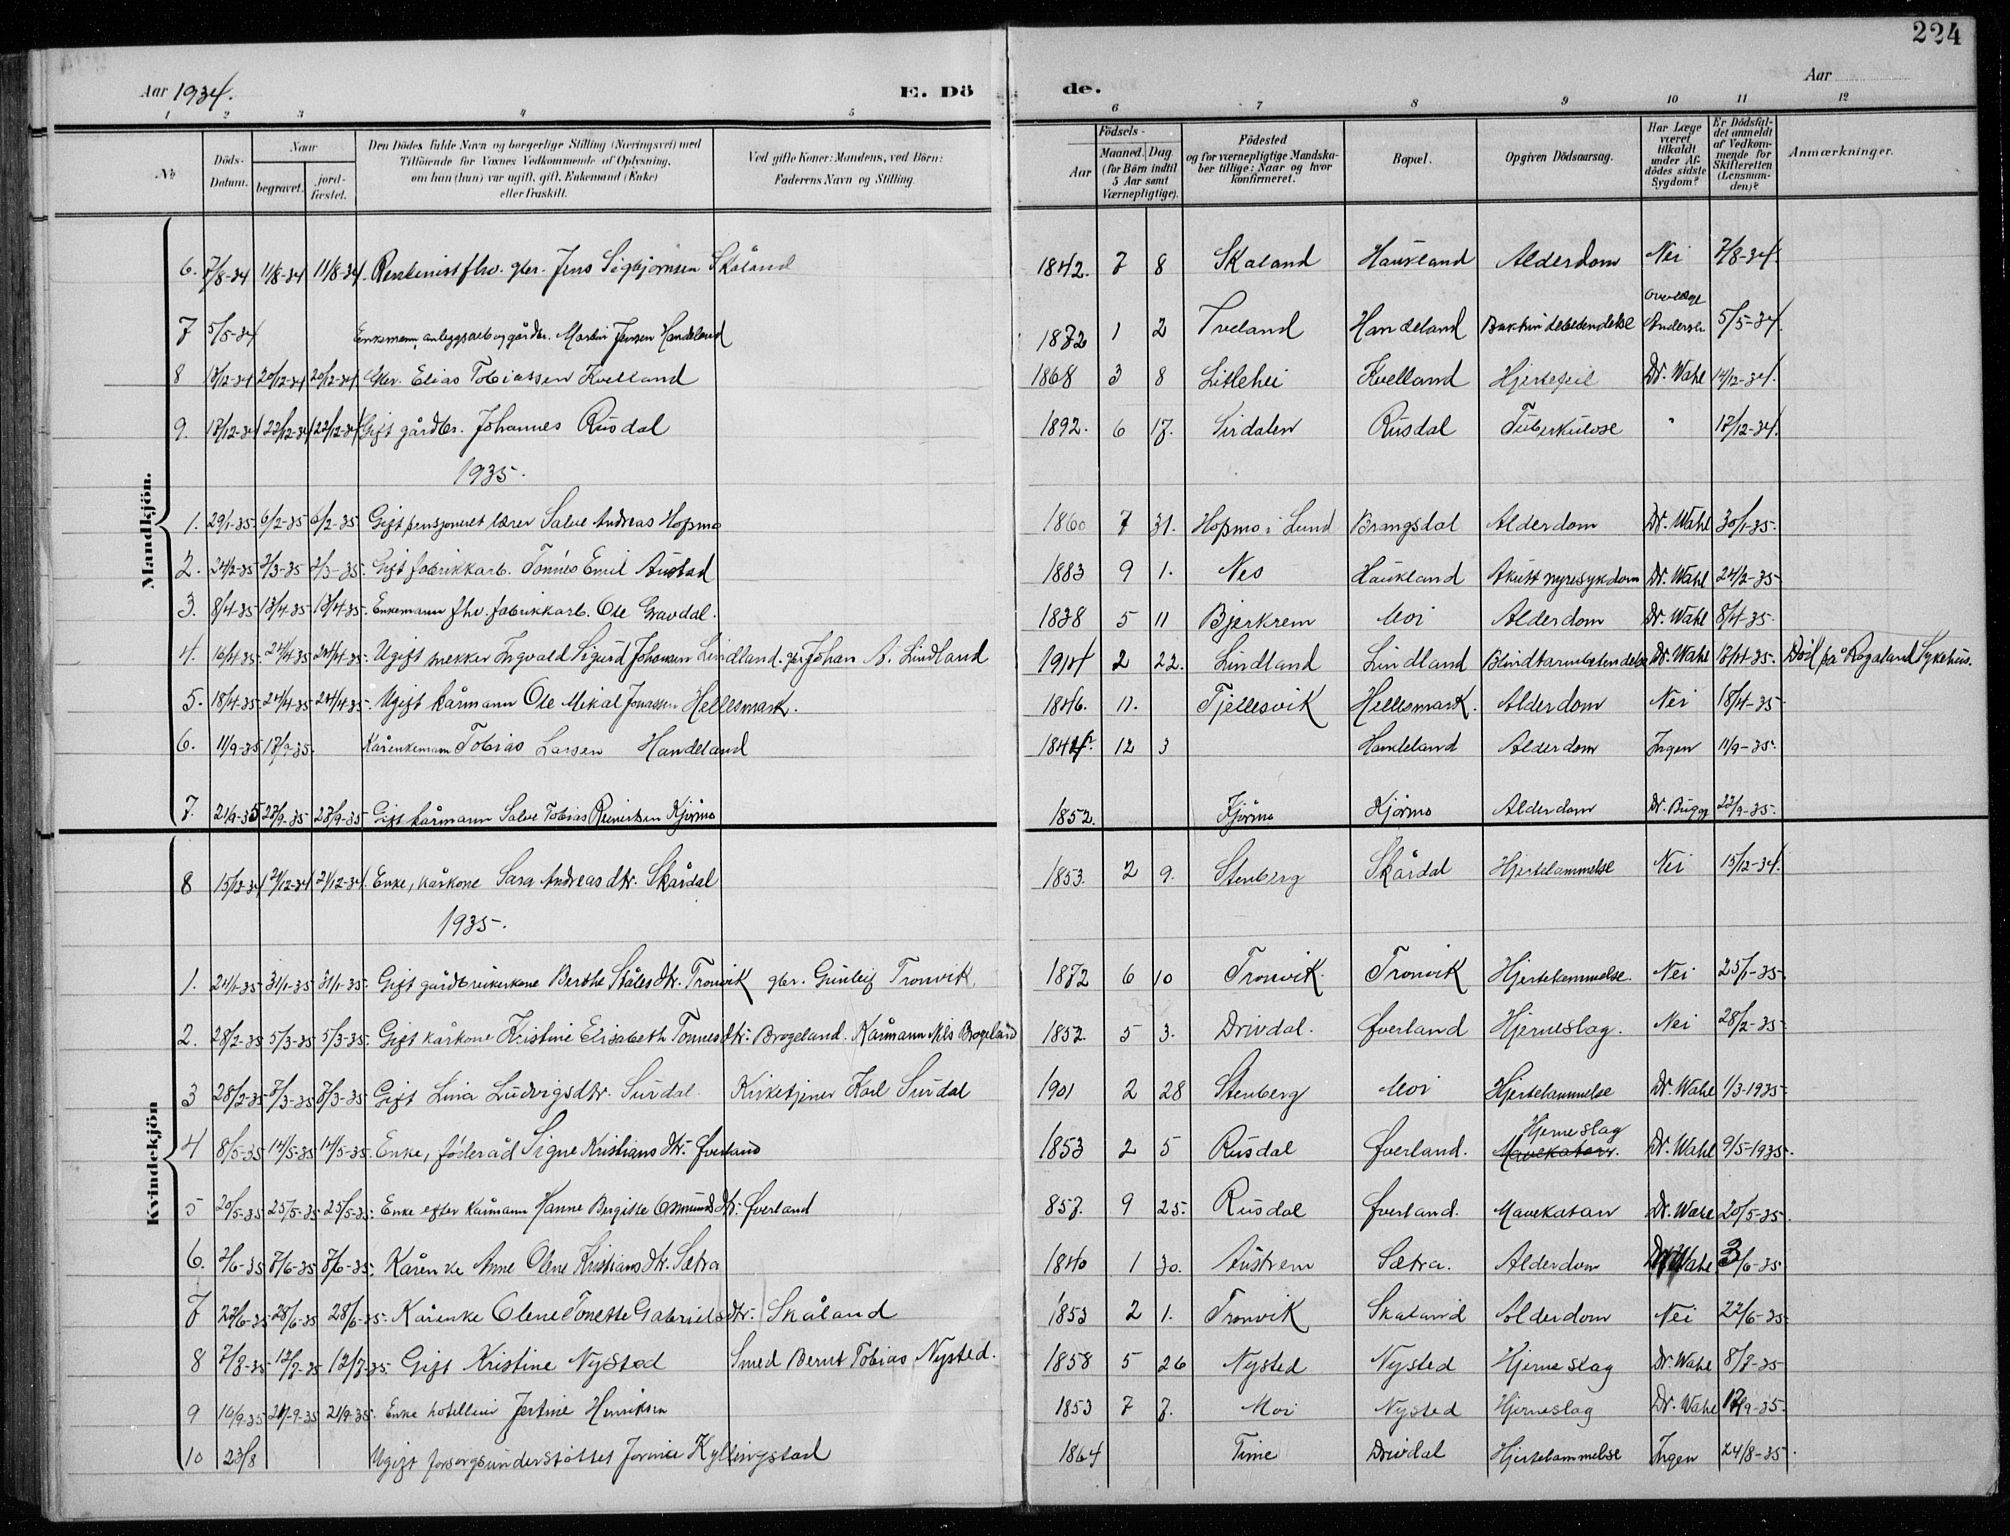 224
Aar 1934. E. Dö de. Aar
1 2 3 4 5 6 7 8 9 10 11 12
No Döds-Datum. Naar begravet. jord-fæstet. Den Dödes fulde Navn og borgerlige Stilling (Næringsvei) med Tilföiende for Voxnes Vedkommende af Oplysning, om han (hun) var ugift, gift, Enkemand (Enke) eller fraskilt. Ved gifte Koner: Mandens, ved Börn: Faderens Navn og Stilling. Födsels- Aar Maaned. Dag. (for Börn indtil 5 Aar samt Værnepligtige). Födested og for værnepligtige Mandskaber tillige: Naar og hvor konfirmeret. Bopæl. Opgiven Dödsaarsag. Har Læge været tilkaldt under Afdödes sidste Sygdom? Er Dödsfaldet anmeldt af Vedkommende for Skifteretten (Lensmanden)? Anmærkninger.
Mandkjön.
6. 7/8-34 11/8-34 11/8-34. Rentenist fhv. gbr. Jens Sigbjørnsen Skåland 1842. 7 8 Skaland Haukland Alderdom Nei 7/8-34.
7 5/5-34 Enkemann, anleggsarb og gårdbr. Martin Jensen Handeland 1872 1 2 Tveland Handeland Overlæge Andersen 5/5-34.
8 13/12-34 20/12-34 20/12-34 Gbr. Elias Tobiassen Kvelland 1868 3 8 Litlehei Kvelland Hjertefeil Dr. Wahl 14/12-34.
9. 17/12-34 22/12-34 22/12-34 Gift gårdbr. Johannes Rusdal 1892. 6 17. Sirdalen Rusdal Tuberkulose " 17/12-34.
1935.
1. 29/1-35. 6/2-35 6/2-35. Gift pensjoneret lærer Salve Andreas Hopmo 1860 7 31. Hopmo i Lund Brangsdal Alderdom Dr. Wahl 30/1-35.
2. 24/2-35 2/3-35 2/3-35. Gift fabrikkarb. Tønnes Emil Austad 1883 9 1. Nes Haukland Akutt nyresykdom Dr. Wahl 24/2-35
3. 8/4-35 13/4-35 13/4-35. Enkemann fhv. fabrikkarb. Ole Gravdal. 1838 5 11 Bjerkrem Moi Alderdom Dr. Wahl 8/4-35.
4. 16/4-35. 24/4-35 24/4-35. Ugift snekker Ingvald Sigurd Johansen Lindland. gbr Johan A. Lindland 1914 2 22. Lindland Lindland Blindtarmbetendelse Dr. Wahl 17/4-35. Død på Rogaland Sykehus.
5. 18/4-35. 24/4-35 24/4-35. Ugift kårmann Ole Mikal Jonassen Hellesmark. 1846. 11. Tjellesvik Hellesmark. Alderdom Nei 18/4-35
6. 11/9-35 17/9-35. Kårenkemann Tobias Larsen Handeland 1844 12 3 Handeland Alderdom Ingen 11/9-35.
7. 21/9-35 27/9-35 27/9-35 Gift kårmann Salve Tobias Reinertsen Kjørmo 1852. Kjørmo Kjørmo Alderdom Dr. Bugge 22/9-35.
Kvindekjön
8 15/12-34 21/12-34 21/12-34. Enke, kårkone Sara Andreasdtr. Skårdal 1853. 2 9. Stenberg Skårdal Hjertelammelse Nei 15/12-34.
1935.
1. 24/1-35 31/1-35 31/1-35. Gift gårdbrukerkone Berthe Ståles dtr. Tronvik gbr. Gunleif Tronvik 1872 6 10 Tronvik. Tronvik Hjertelammelse. Nei 25/1-35.
2. 28/2-35 5/3-35 5/3-35. Gift kårkone Kristine Elisabeth Tønnesdtr. Brogeland. Kårmann Nils Brogeland 1852. 5 3. Drivdal. Øverland Hjerneslag. Nei 28/2-35.
3 28/2-35 7/3-35 7/3-35. Gift Lina Ludvigsdtr. Surdal. Kirketjener Karl Surdal 1901 2 28 Stenberg Moi Hjertelammelse Dr. Wahl 1/3-1935.
4 8/5-35 14/5-35 14/5-35. Enke, føderåd Signe Kristians dtr. Øverland 1853 2 5 Rusdal Øverland. Hjerneslag Mavekatarr. Dr. Wahl 9/5-1935.
5 20/5-35 25/5-35 25/5-35. Enke efter kårmann Hanne Bergitte Osmunds dtr. Øverland 857. 9 25. Rusdal Øverland. Mavekatarr Dr. Wahl 20/5-35.
6. 2/6-35 7/6-35 7/6-35. Kårenke Anne Olene Kristians dtr. Sætra 1840 1 30. Austrem Sætra. Alderdom Dr. Wahl 3/6-35
7 22/6-35 28/6-35 28/6-35. Kårenke Olene Tonette Gabrielsdtr. Skåland 1853 2 1. Tronvik Skaland Alderdom Nei 22/6-35.
8 7/7-35 12/7-35 12/7-35. Gift Kristine Nysted Smed Bernt Tobias Nysted. 1858 5 26 Nysted Nysted Hjerneslag Dr. Wahl 8/7-35
9 16/9-35 21/9-35 21/9-35. Enke hotelleier Jertine Henriksen 1853 7 7. Moi Nysted Hjerneslag Dr. Wahl 17/9-35.
10 23/8 Ugift forsorgsunderstøttet Jorina Kyllingstad 1864 Time Drivdal Hjertelammelse Ingen 24/8-35.